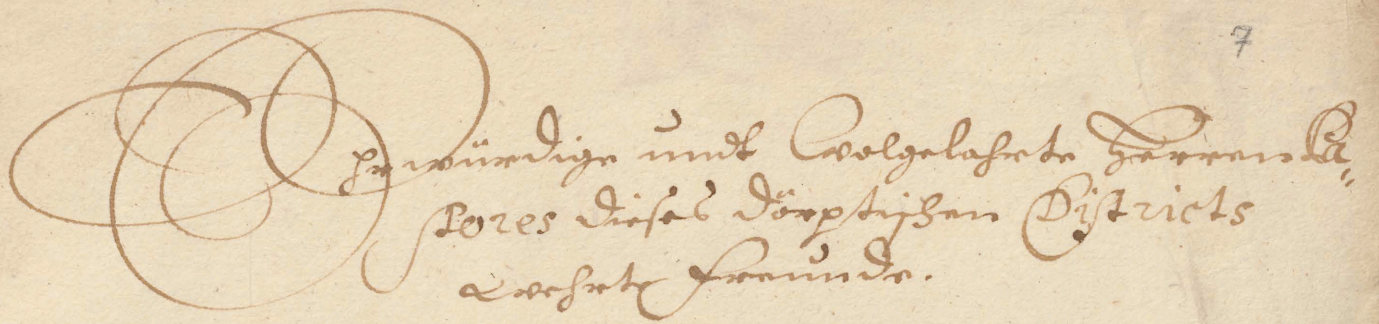 7
Ehrwürdige undt Wolgelahrte Herren Pa-
stores dieses dörptischen Districts
Wehrte Freunde.